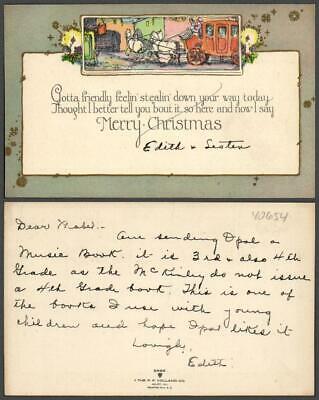 Gotta friendly feelin' stealin' down your way today.
Thought I better tell you bout it, so here and now I say
Merry Christmas
Edith & Lester
40654
Dear Mabel.-
Am sending Opal a
Music Book. it is 3rd & also 4th
Grade as the McKinley do not issue
a 4th Grade book. This is one of
the books I use with young
children and hope Opal likes it
Lovingly,
Edith
THE P. F. VOLLAND CO.